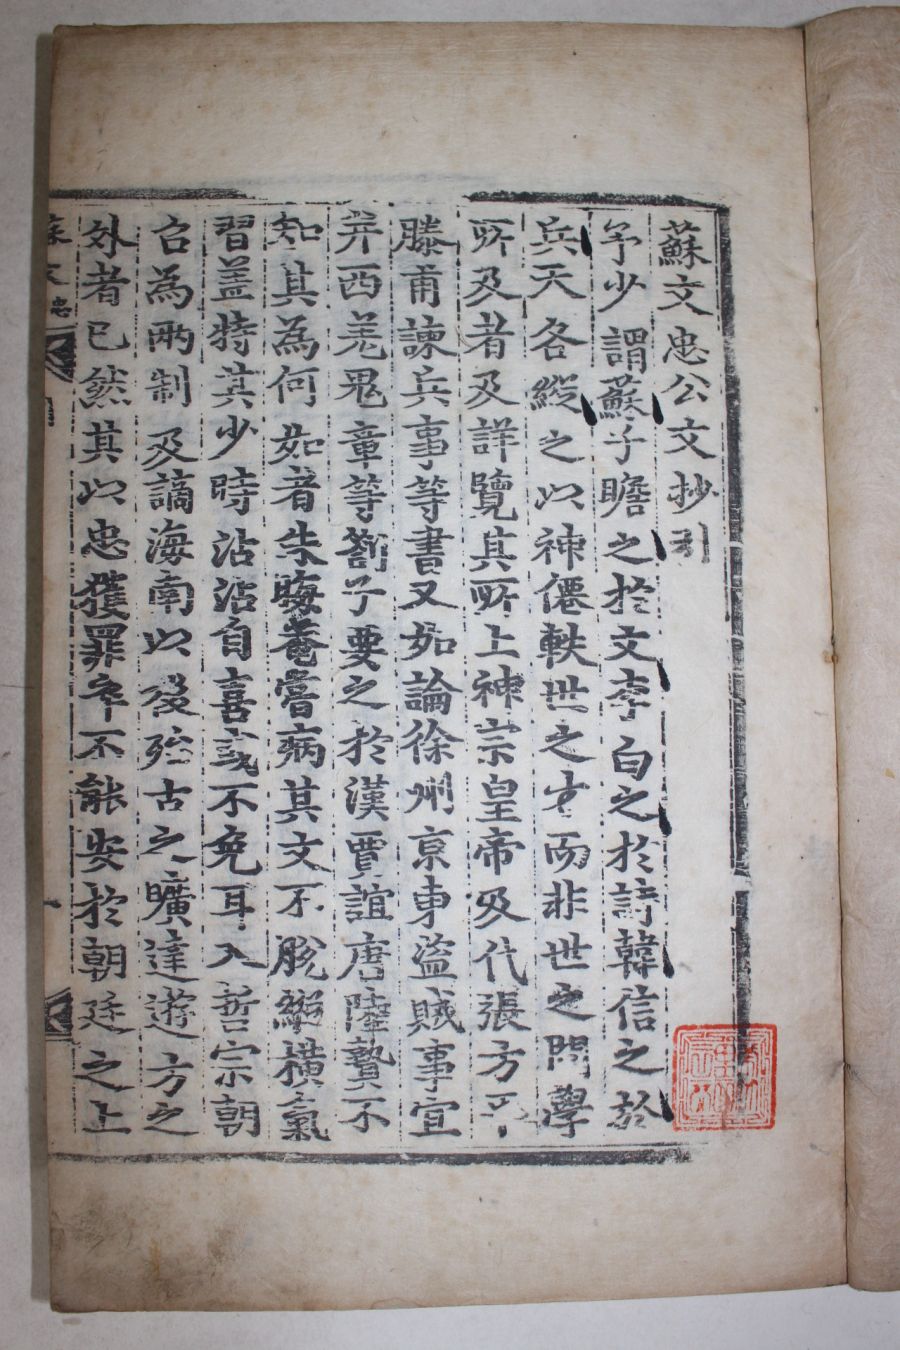 蘇文忠公文抄引
予少謂蘇子瞻之於文李白之於詩韓信之於
兵天各縱之以神僊軼世之才而非世之問學
所及者及詳覽其所上神宗皇帝及代張方平
滕甫諫兵事等書又如論徐州京東盜賊事宜
并西羌鬼章等劄子要之於漢賈誼唐陸贄不
知其爲何如者朱晦菴嘗病其文不脫縱橫氣
習盖特其少時沾沾自喜或不免耳入哲宗朝
召爲兩制及謫海南以後殆古之曠達遊方之
外者已然其以忠獲罪卒不能安於朝廷之上